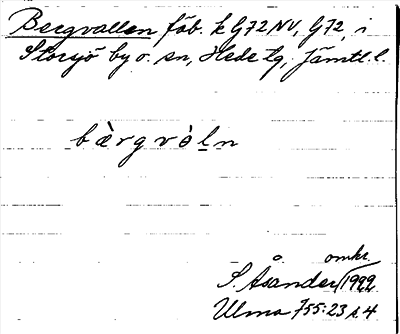 Bergvallen fäb. k G72NV, G72, i
Storsjö by o. sn, Hede tg, Jämtl. l.
bàrgvòḷn
omkr.
S. Åsander 1922
Ulma 755:23 s. 4